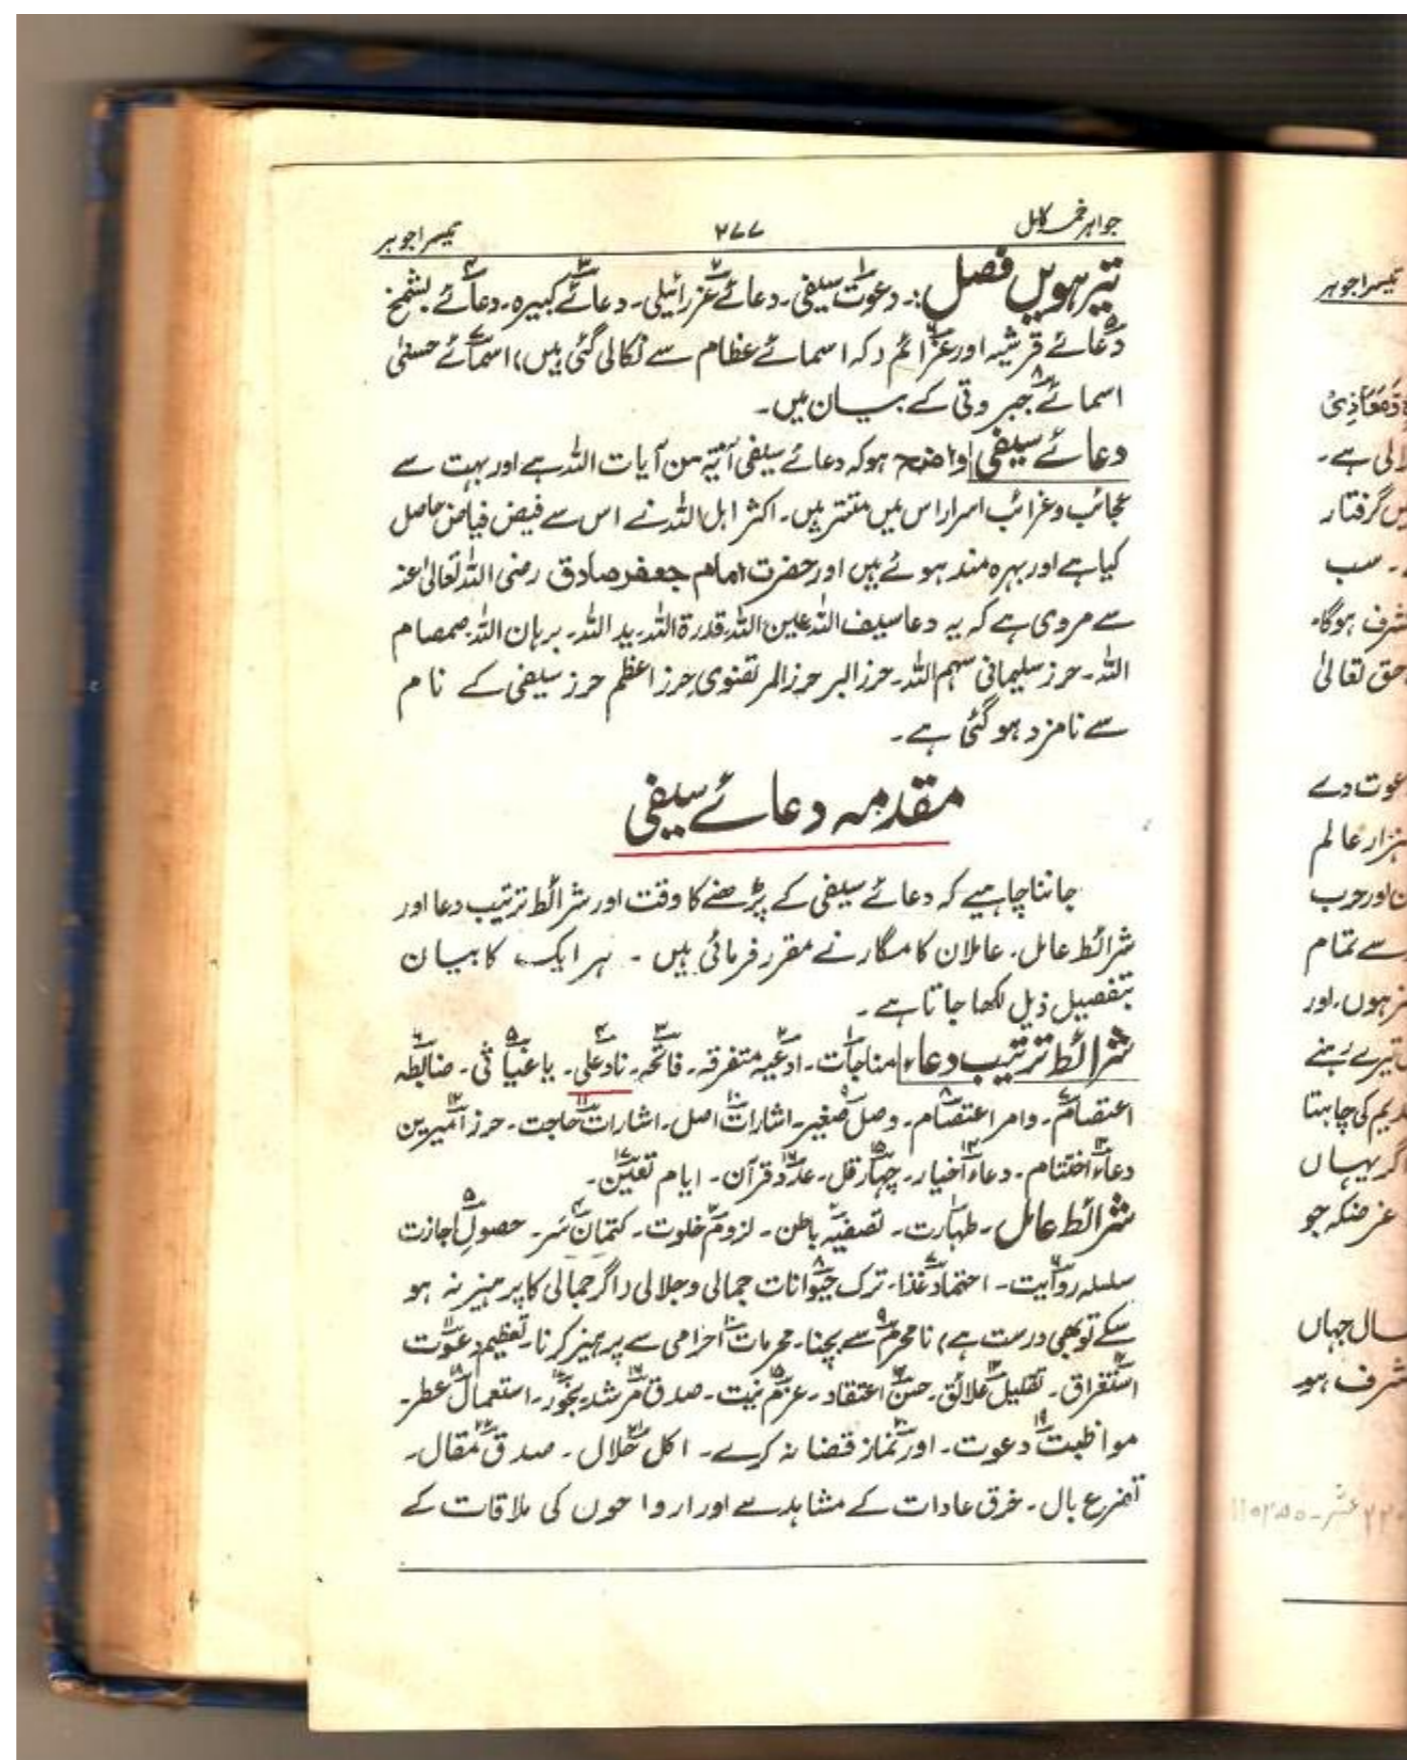 جواہر خمسہ کامل ۲۷۷ تیسرا جوہر
تیرہویں فصل :۔ دعوت۱ سیفی۔ دعائے۲ عزرائیلی۔ دعائے۳ کبیرہ۔ دعائے۴ بشمخ
دعائے۵ قرشیہ اور عزائم۶ (کہ اسمائے عظام سے نکالی گئی ہیں) اسمائے۷ حسنیٰ
اسمائے۸ جبروتی کے بیان میں۔
دعائے سیفی واضح ہو کہ دعائے سیفی آئیہ من آیات اللہ ہے اور بہت سے
عجائب و غرائب اسرار اس میں مستتر ہیں۔ اکثر اہل اللہ نے اس سے فیض فیاض حاصل
کیا ہے اور بہرہ مند ہوئے ہیں اور حضرت امام جعفر صادق رضی اللہ تعالیٰ عنہ
سے مروی ہے کہ یہ دعا سیف اللہ عین اللہ۔ قدرۃ اللہ۔ ید اللہ۔ برہان اللہ۔ صمصام
اللہ۔ حرز سلیمانی سہم اللہ۔ حرز البر حرز المرتضوی حرز اعظم حرز سیفی کے نام
سے نامزد ہو گئی ہے۔
مقدمہ دعائے سیفی
جاننا چاہیے کہ دعائے سیفی کے پڑھنے کا وقت اور شرائط ترتیب دعا اور
شرائط عامل۔ عاملان کامگار نے مقرر فرمائی ہیں ۔ ہر ایک کا بیان
بتفصیل ذیل لکھا جاتا ہے ۔
شرائط ترتیب دعاء مناجات۱۔ ادعیہ۲ متفرقہ۔ فاتحہ۳۔ ناد علی۴۔ یا غیاثی۵۔ ضابطہ۶
اعتصام۷۔ وامر اعتصام۸۔ وصل صغیر۹۔ اشارات۱۰ اصل۔ اشارات۱۱ حاجت۔ حرز امیرین۱۲
دعاء۱۳ اختتام۔ دعاء۱۴ اخیار۔ چہار۱۵ قل۔ عدد۱۶ قرآن۔ ایام تعین۱۷۔
شرائط عامل۔ طہارت۱۔ تصفیہ۲ باطن۔ لزوم۳ خلوت۔ کتمان۴ سر۔ حصول۵ اجازت
سلسلہ روایت۶۔ احتماد۷ غذا۔ ترک حیوانات۸ جمالی و جلالی (اگر جمالی کا پرہیز نہ ہو
سکے تو بھی درست ہے) نامحرم۹ سے بچنا۔ محرمات۱۰ احرامی سے پرہیز کرنا۔ تعظیم دعوت۱۱
استغراق۱۲۔ تقلیل۱۳ علائق۔ حسن۱۴ اعتقاد۔ عزم۱۵ نیت۔ صدق۱۶ مرشد۔ بخور۱۷۔ استعمال۱۸ عطر۔
مواظبت۱۹ دعوت۔ اور نماز۲۰ قضا نہ کرے۔ اکل۲۱ حلال۔ صدق۲۲ مقال۔
تضرع بال۔ خرق عادات کے مشاہدے اور ارواحوں کی ملاقات کے
تیسرا جوہر
الی ہے۔
میں گرفتار
۔ سب
مشرف ہوگا۔
حق تعالیٰ
دعوت دے
ہزار عالم
اور حرب
سے تمام
ہوں۔ اور
تیرے رہنے
کی چاہتا
اگر یہاں
غرضکہ جو
سال جہاں
مشرف ہو